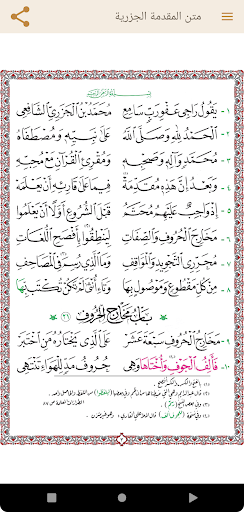 متن المقدمة الجزرية
١- يَقُولُ رَاجِي عَفْوِ رَبٍّ سَامِعِ مُحَمَّدُ بْنُ الْجَزَرِيِّ الشَّافِعِي
٢- الْحَمْدُ لِلَّهِ وَصَلَّى اللَّهُ عَلَى نَبِيِّهِ وَمُصْطَفَاهُ
٣- مُحَمَّدٍ وَآلِهِ وَصَحْبِهِ وَمُقْرِئِ الْقُرْآنِ مَعْ مُحِبِّهِ
٤- وَبَعْدُ إِنَّ هَذِهِ مُقَدِّمَهْ فِيمَا عَلَى قَارِئِهِ أَنْ يَعْلَمَهْ
٥- إِذْ وَاجِبٌ عَلَيْهِمُ مُحَتَّمُ قَبْلَ الشُّرُوعِ أَوَّلًا أَنْ يَعْلَمُوا
٦- مَخَارِجَ الْحُرُوفِ وَالصِّفَاتِ لِيَنْطِقُوا بِأَفْصَحِ اللُّغَاتِ
٧- مُحَرِّرِي التَّجْوِيدِ وَالْمَوَاقِفِ وَمَا الَّذِي رُسِمَ فِي الْمَصَاحِفِ
٨- مِنْ كُلِّ مَقْطُوعٍ وَمَوْصُولٍ بِهَا وَتَاءِ أُنْثَى لَمْ تَكُنْ تُكْتَبْ بِهَا
بَابُ مَخَارِجِ الْحُرُوفِ
٩- مَخَارِجُ الْحُرُوفِ سَبْعَةَ عَشَرْ عَلَى الَّذِي يَخْتَارُهُ مَنِ اخْتَبَرْ
١٠- فَأَلِفُ الْجَوْفِ وَأُخْتَاهَا وَهِي حُرُوفُ مَدٍّ لِلْهَوَاءِ تَنْتَهِي